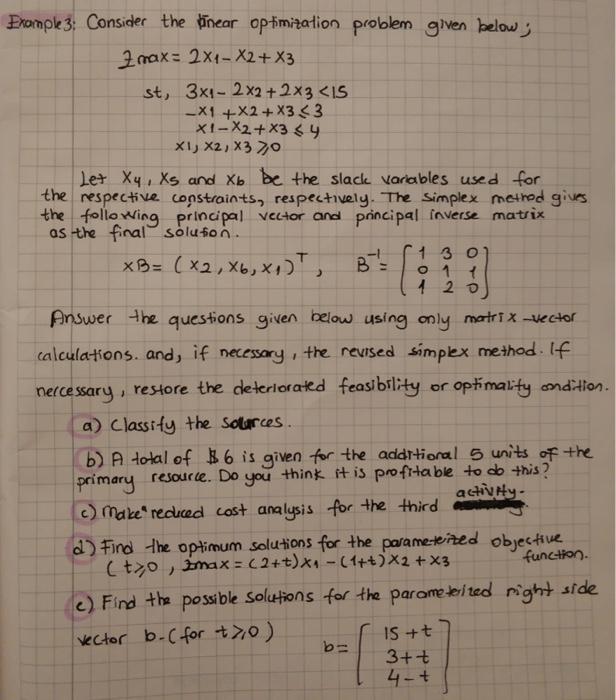 Example 3: Consider the linear optimization problem given below;
Zmax = 2x1 - x2 + x3
st, 3x1 - 2x2 + 2x3 < 15
-x1 + x2 + x3 ≤ 3
x1 - x2 + x3 ≤ 4
x1, x2, x3 ≥ 0
Let x4, x5 and x6 be the slack varables used for
the respective constraints, respectively. The simplex method gives
the following principal vector and principal inverse matrix
as the final solution.
xB = (x2, x6, x1)ᵀ, B⁻¹ = [1 3 0
0 1 1
1 2 0]
Answer the questions given below using only matrix-vector
calculations. and, if necessary, the revised simplex method. If
nercessary, restore the deteriorated feasibility or optimality condition.
a) Classify the sources.
b) A total of $6 is given for the addrtional 5 units of the
primary resource. Do you think it is profitable to do this?
c) Make "reduced cost analysis for the third activity.
d) Find the optimum solutions for the parameterized objective
(t≥0, zmax = (2+t)x1 - (1+t)x2 + x3 function.
e) Find the possible solutions for the parameterized right side
vector b. (for t≥0) b = [15+t
3+t
4-t]